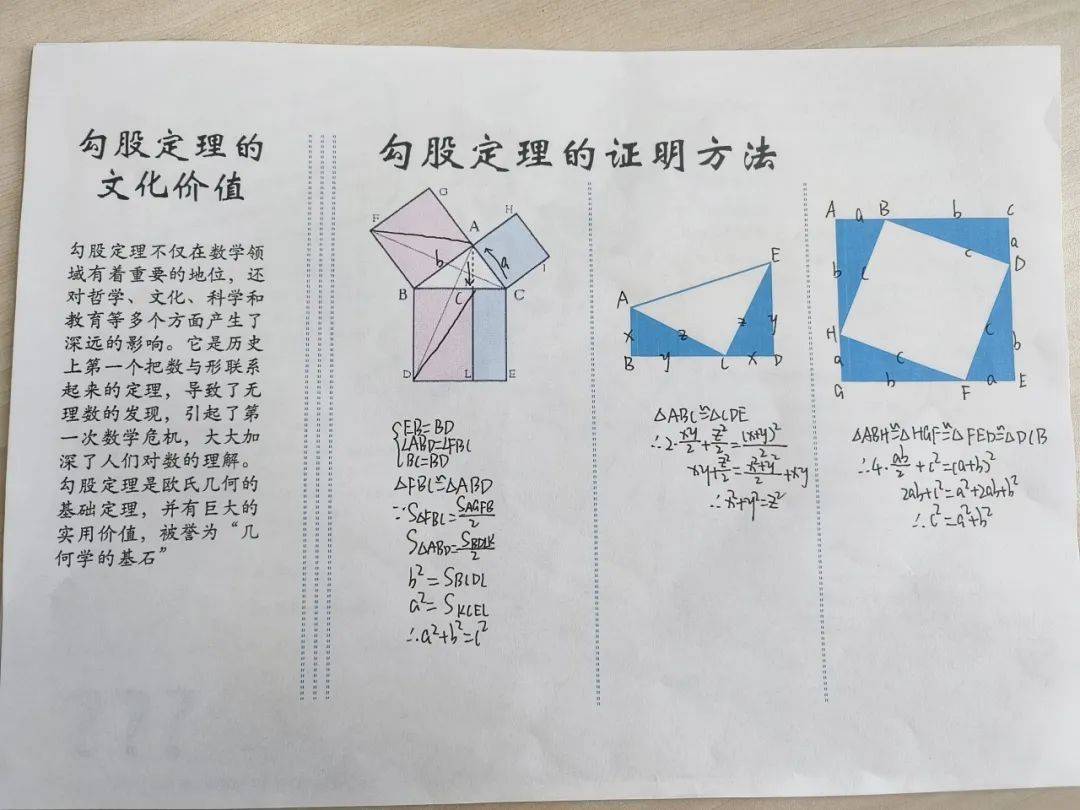 勾股定理的
文化价值
勾股定理不仅在数学领
域有着重要的地位，还
对哲学、文化、科学和
教育等多个方面产生了
深远的影响。它是历史
上第一个把数与形联系
起来的定理，导致了无
理数的发现，引起了第
一次数学危机，大大加
深了人们对数的理解。
勾股定理是欧氏几何的
基础定理，并有巨大的
实用价值，被誉为“几
何学的基石”
勾股定理的证明方法
G
F
A
H
b
a
I
B
C
C
D
L
E
{FB=BD
∠ABD=∠FBC
BC=BD
△FBC≌△ABD
∵S△FBC=SAGFB/2
S△ABD=SBDLK/2
b²=SBLDL
a²=SKCEL
∴a²+b²=c²
E
A
x
z
z
y
B
y
C
x
D
△ABC≌△CDE
∴2·xy/2+z²/2=(x+y)²/2
xy+z²/2=x²+y²/2+xy
∴x²+y²=z²
A
a
B
b
C
a
b
c
c
D
H
c
b
a
c
G
b
F
a
E
△ABH≌△HGF≌△FED≌△DCB
∴4·ab/2+c²=(a+b)²
2ab+c²=a²+2ab+b²
∴c²=a²+b²